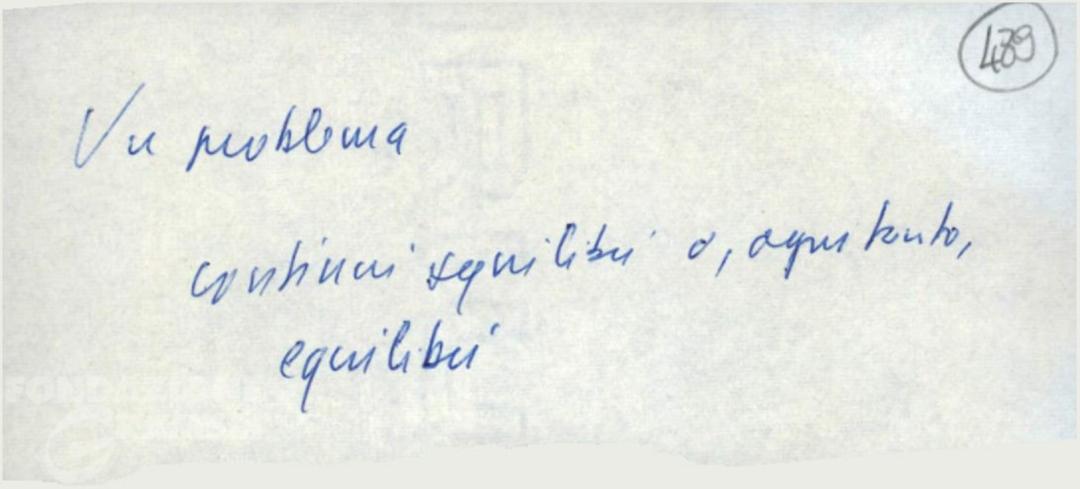 489
Un problema
continui squilibri o, ogni tanto,
equilibri